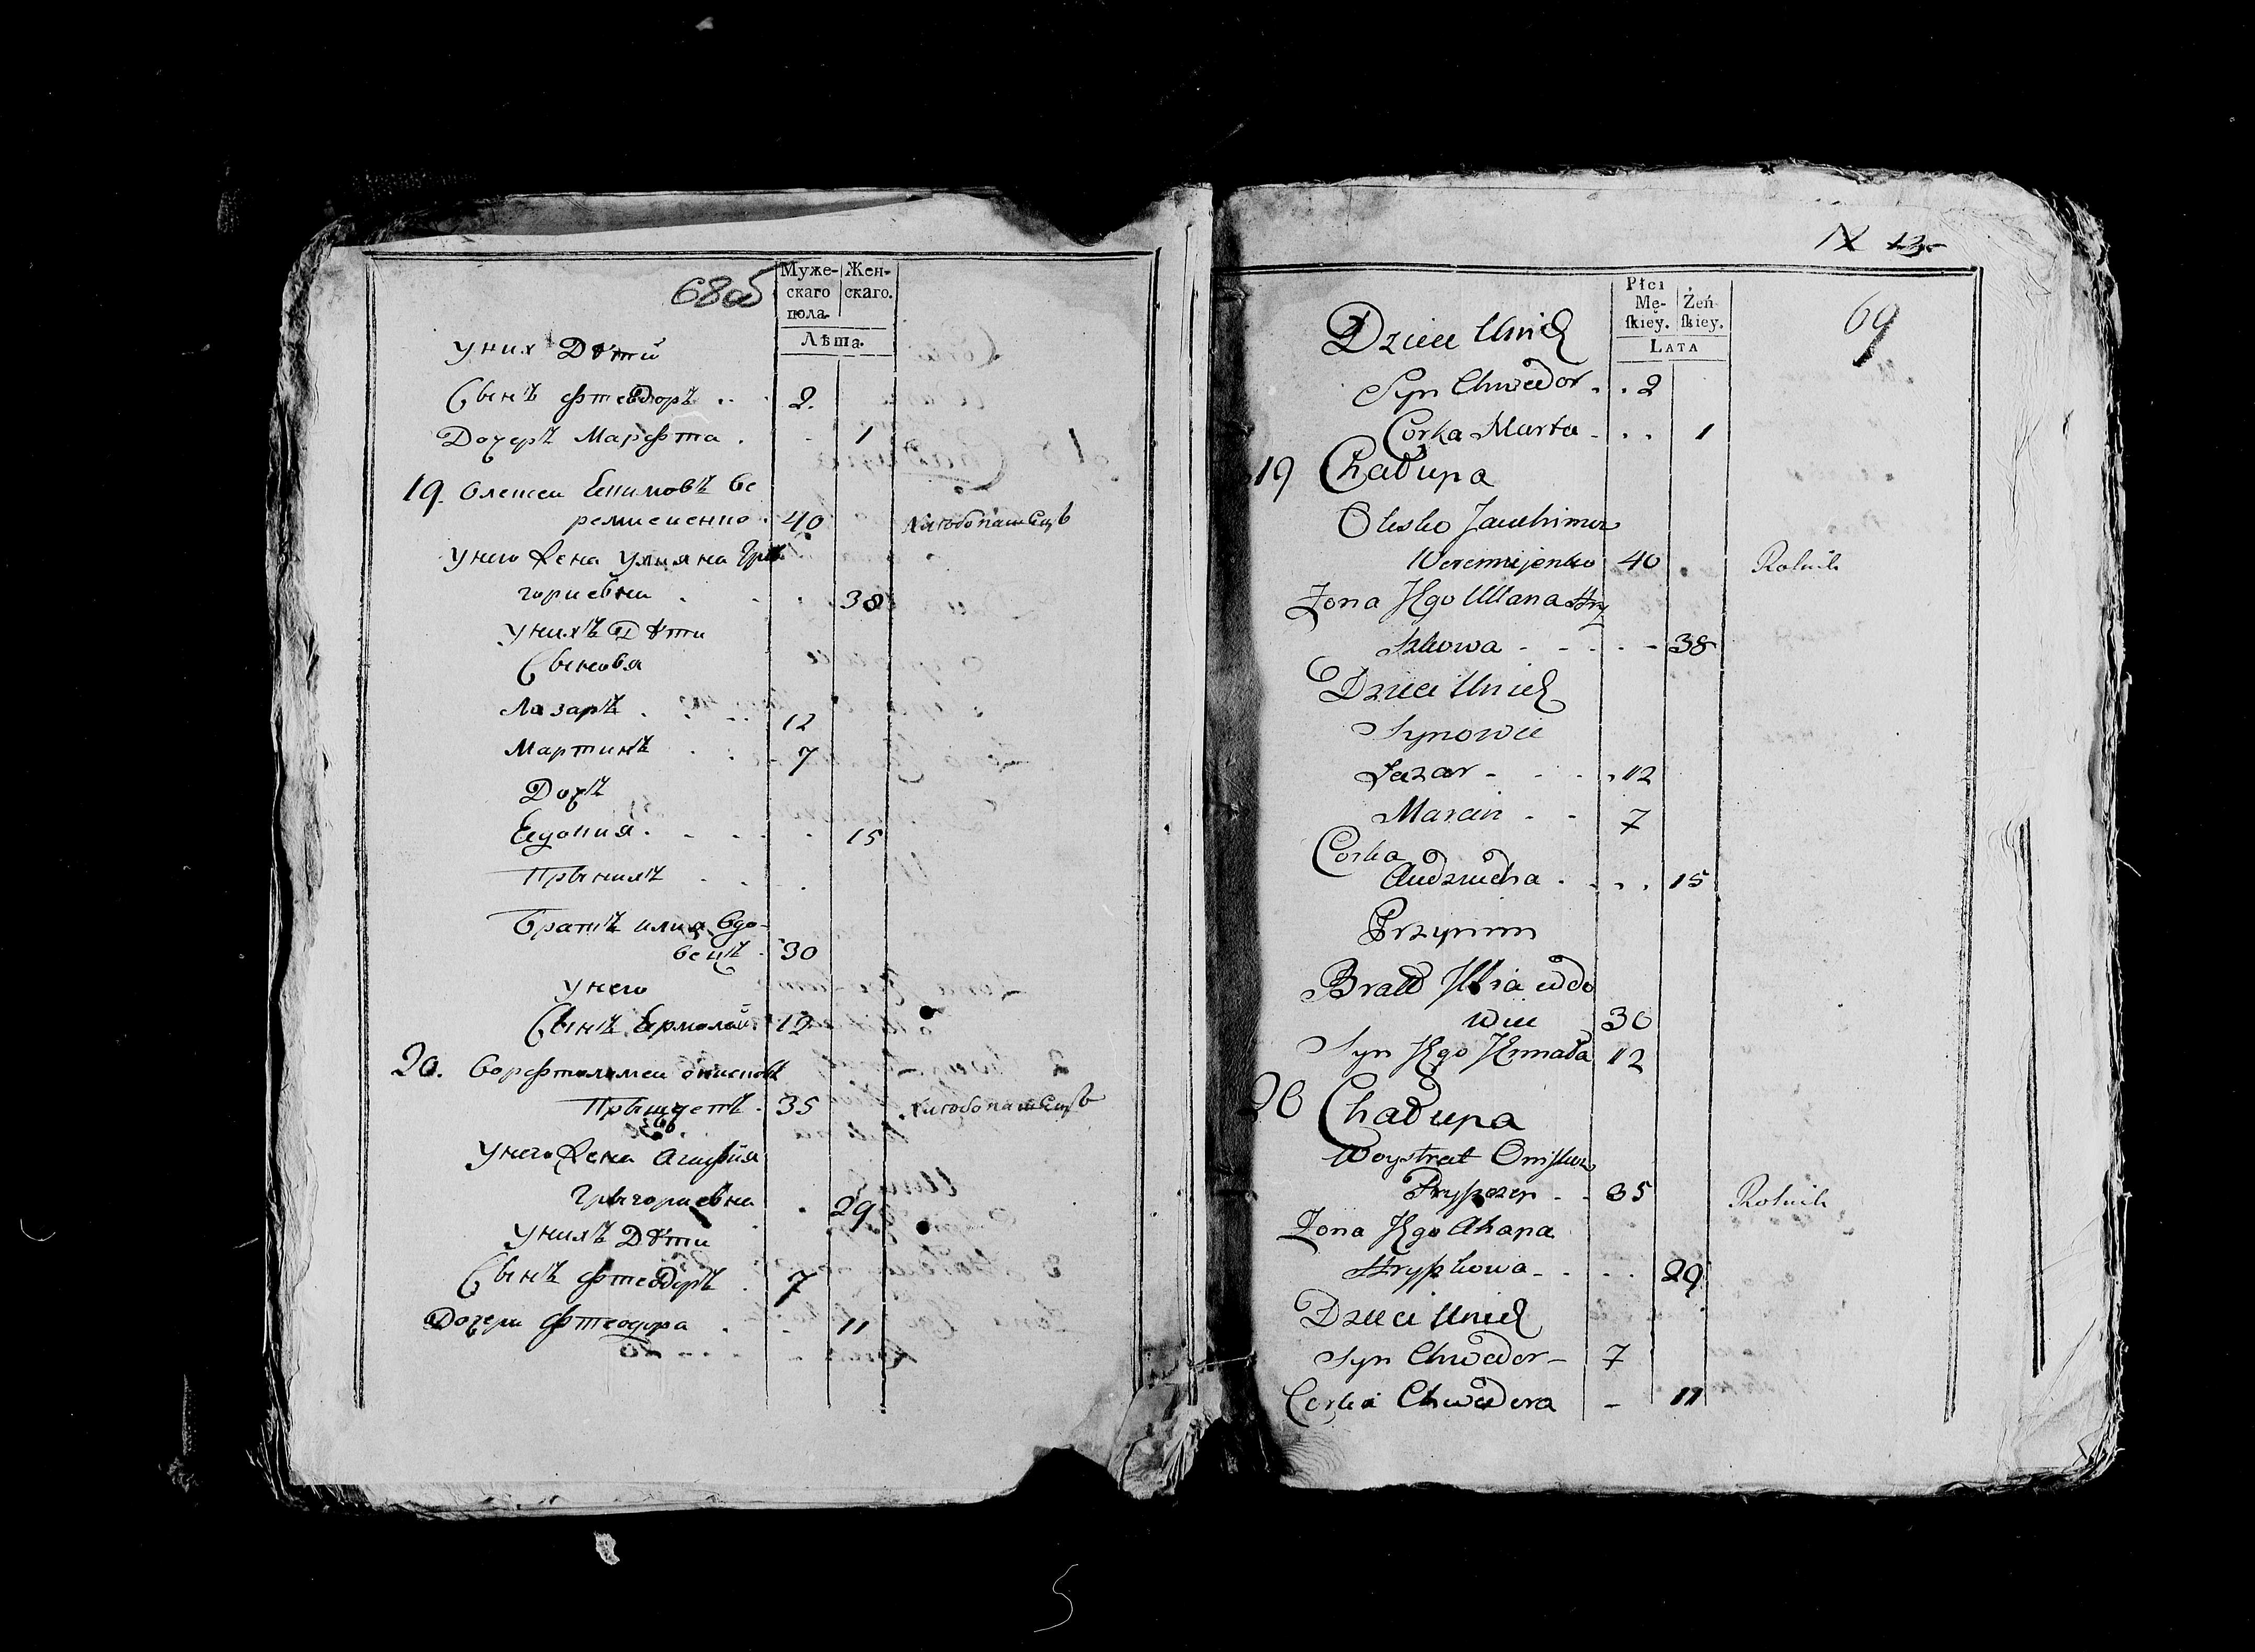 68об
Муже- Жен-
скаго скаго.
пола.
Лѣта.
У них Дѣти
Сынъ Фтеодоръ . . 2.
Дочеръ Марфта . . 1
19. Олексеи Екимовъ Ве
ремиенко . 40 Хлѣбопашецъ
У него Жена Улияна Гри
гориевна . . . 38
У нихъ Дѣти
Сыновя
Лазаръ . . . 12
Мартинъ . . 7
Дочъ
Евдокия . . . . 15
При нихъ . . .
Братъ илия вдо-
вецъ . 30
У него
Сынъ Ермолай 12
20. Ворфтоломеи онисковъ
35 Хлѣбопашецъ
У него Жена Агафия
Григориевна . 29
У нихъ Дѣти
Сынъ Фтеодоръ . 7
Дочери Фтеодора . - 11
IX 13
69
Płci
Mę- Żeń-
ſkiey. ſkiey.
LATA
Dzieci Unich
Syn Chwedor . . 2
Corka Marta - . . 1
19 Chałupa
Olesko Jauchimow
Weremijenko 40 Rolnik
Żona Jego Ullana Hry
szkowa - - - - 38
Dzieci Unich
Synowie
Łazar - - - . 12
Marcin - - 7
Corka
Audziucha . . . . 15
Przynim
Bratt Illia wdo
wiec 30
Syn Jego Jermała 12
20 Chałupa
Woystrat Oniſkow
Pryszczep - - 35 Rolnik
Żona Jego Ahapa
Hryſzkowa - . . . 29
Dzieci Unich
Syn Chwedor - 7
Corka Chwedora - 11